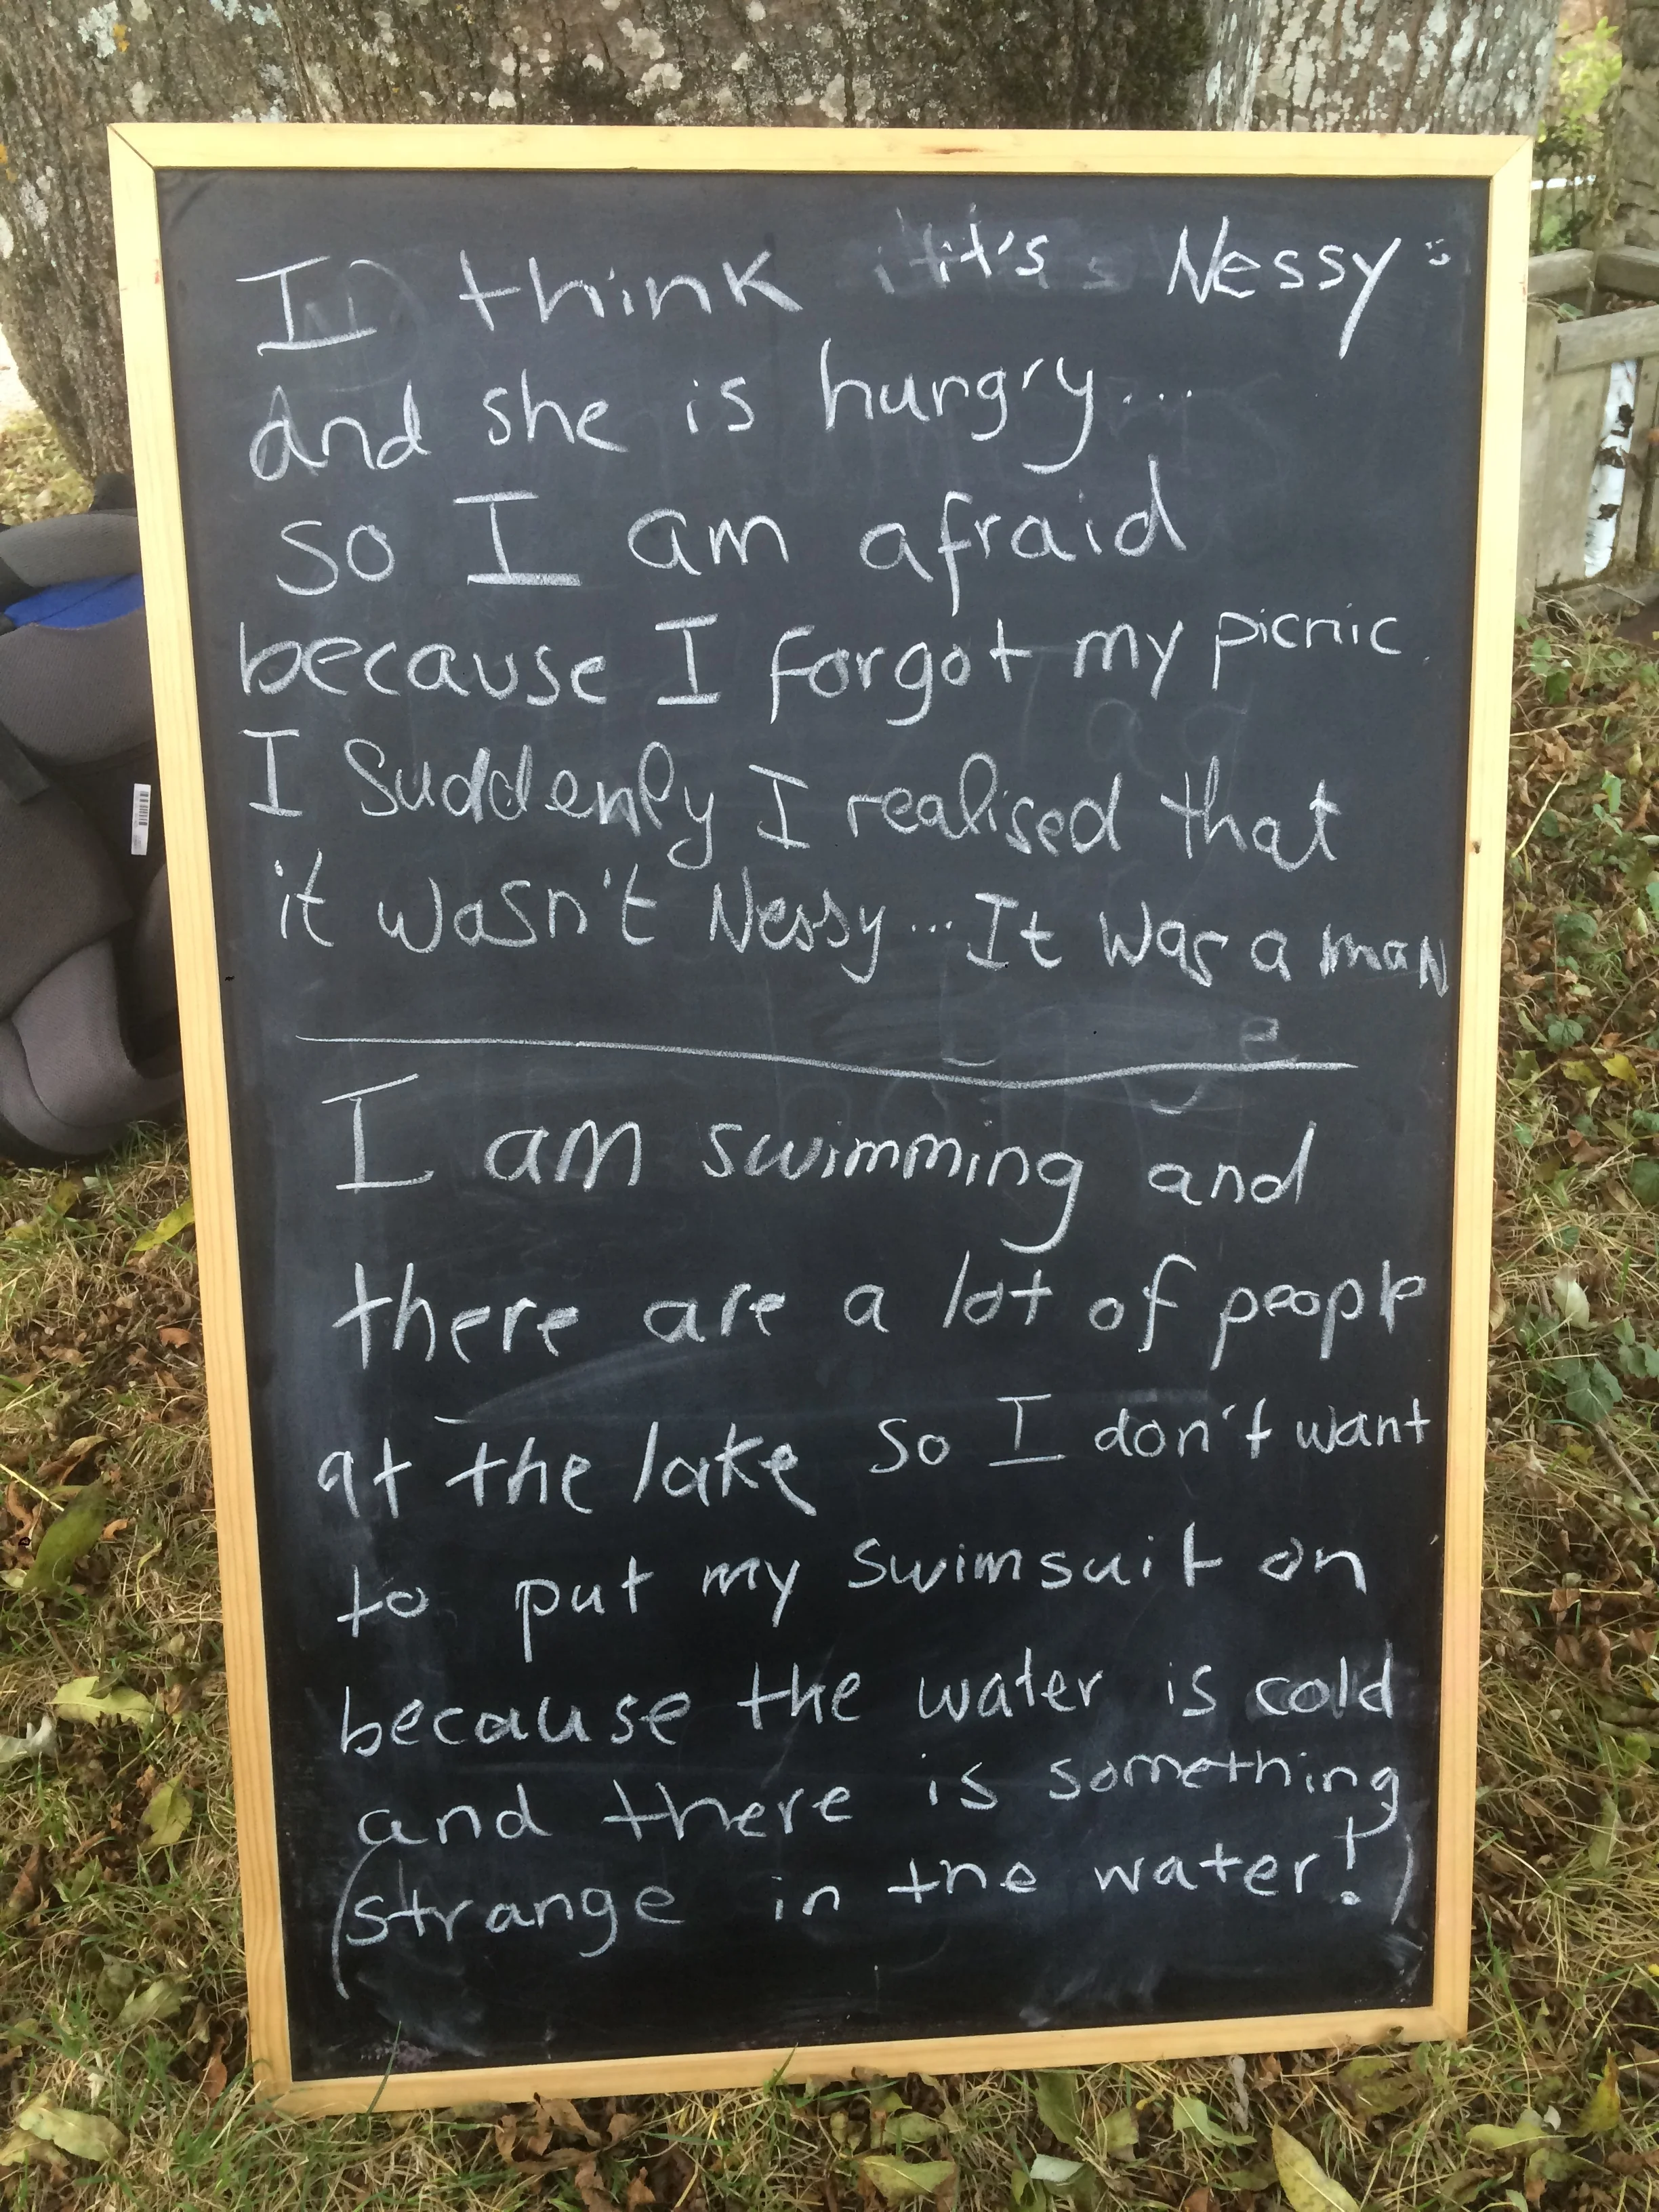 I think it's Nessy
and she is hungry...
so I am afraid
because I forgot my picnic
I Suddenly I realised that
it wasn't Nessy... It was a man
I am swimming and
there are a lot of people
at the lake so I don't want
to put my swimsuit on
because the water is cold
and there is something
(strange in the water!)